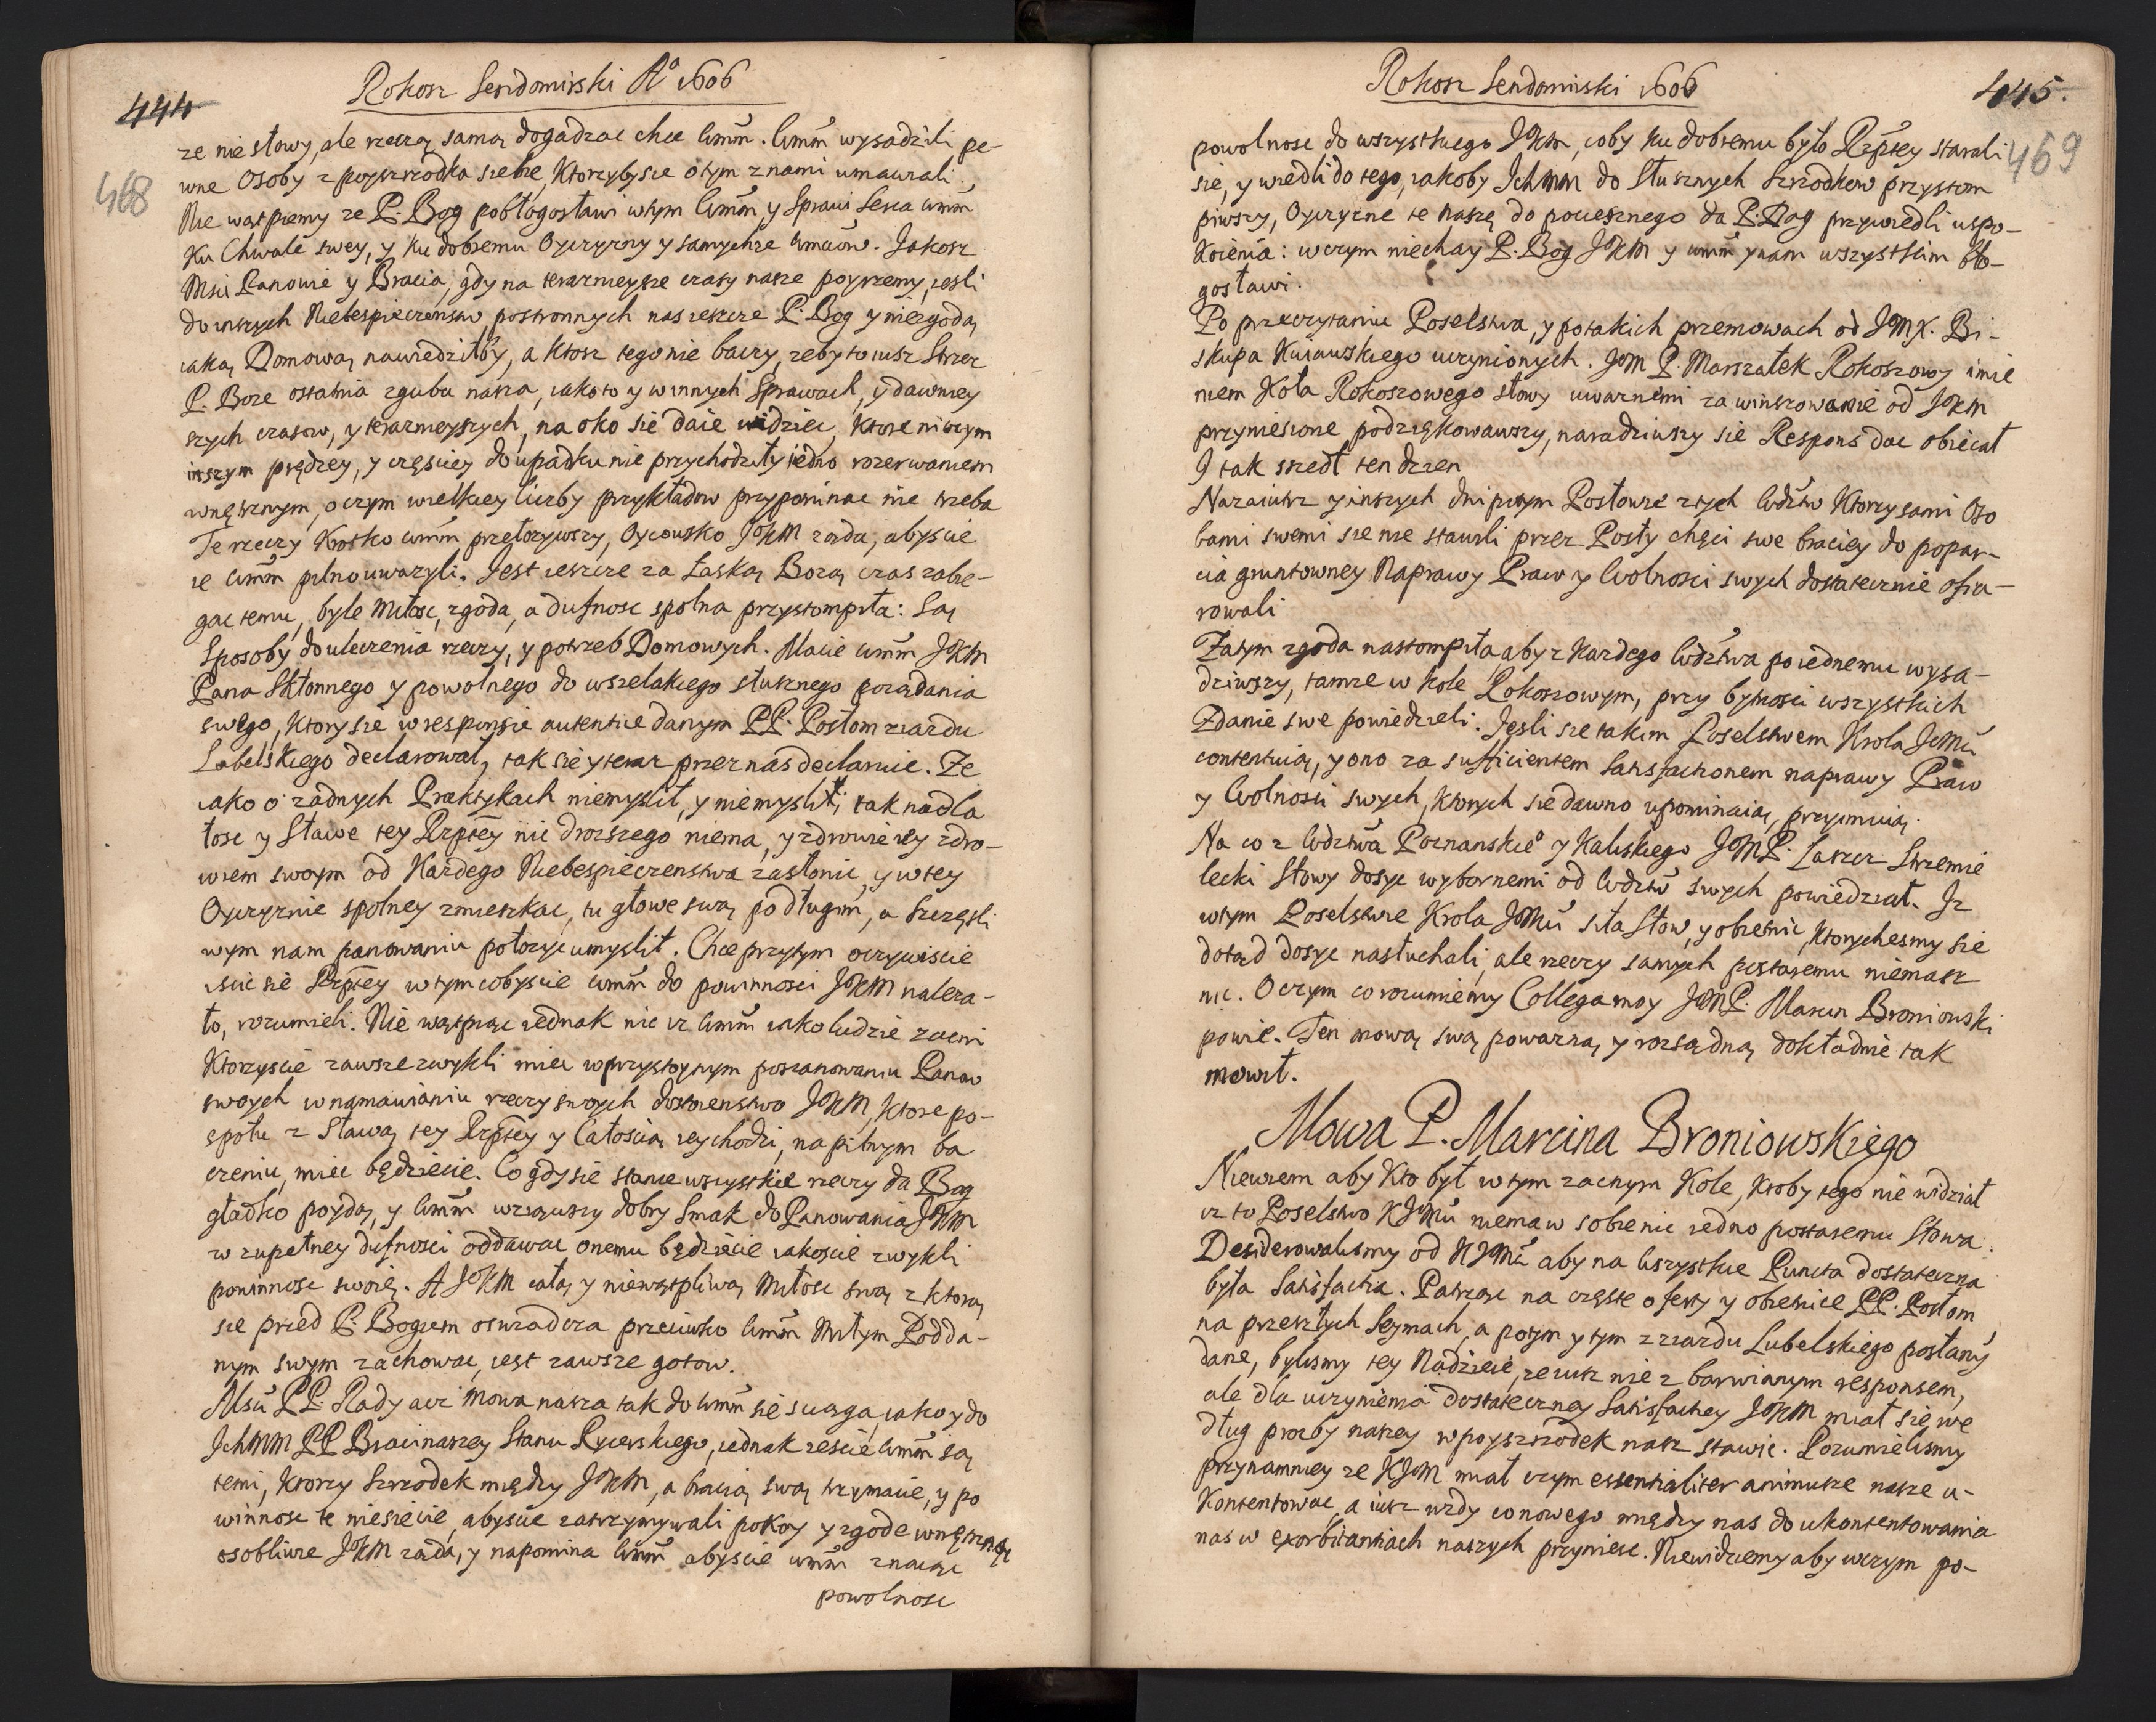 444
Rokosz Sendomirski Aº 1606
468
ze nie słowy, ale rzeczą samą dogadzac chce Wmm. Wmm wysadzili pe-
wne Osoby z poyszrzodka siebie, Ktorzybysie o tym z nami umawiali.
Nie wątpiemy ze P. Bog pobłogosławi wtym Wmm y Sprawi Serca wmm
Ku Chwale swey, y ku dobremu Oyczyzny y samychze wmciow. Jakosz
Msci Panowie y Bracia, gdy na terazmieysze czasy nasze poyrzemy, jesli
do inszych Niebespieczenstw, postronnych nas ieszcze P. Bog y niezgodą
iaką Domową nawiedziłby, a ktosz tego nie baczy, zeby to iusz Strzez
P. Boze ostatnia zguba nasza, iako to y w innych Sprawach, y dawniey
szych czasow, y terazmieyszych, na oko się daie widziec, ktore niczym
inszym prędzey, y częsciey do upadku nie przychodziły iedno rozerwaniem
wnętrznym, o czym wielkiey liczby przykładow przypominac nie trzeba
Te rzeczy Krotko wmm przełozywszy, Oycowsko JKM ząda, abyscie
ie wmm pilno uwazyli. Jest ieszcze za Łaską Bozą czas zabie-
gac temu, byle Miłosc, zgoda, a dufnosc spolna przystompiła: Są
Sposoby do uleczenia rzeczy, y potrzeb Domowych. Macie wmm JKM
Pana Skłonnego y powolnego do wszelakiego słusznego poządania
swego, Ktory sie w responsie autentice danym PP. Posłom ziazdu
Lubelskiego declarował, tak się y teraz przez nas declaruie. Ze
iako o zadnych Praktykach niemyslił, y niemysli, tak nadla
łosc y Sławe tey Rzptey nic drozszego niema, y zdrowie iey zdro-
wiem swoym od Kazdego Niebespieczenstwa zasłonic, y w tey
Oyczyznie spolney zmieszkac, tu głowe swą po długim, a szczęsli
wym nam panowaniu połozyc umyslił. Chce przytym oczywiscie
iscic się Rzptey w tym cobyscie wmm do powinnosci JKM naleza-
ło, rozumieli. Nie wątpiąc iednak nic iz wmm iako ludzie zacni
Ktorzyscie zawsze zwykli miec w przystoynym poszanowaniu Panow
swoych w namawianiu rzeczy swoych dostoienstwo JKM, ktore po-
społu z Sławą tey Rzptey y Całoscią iey chodzi, na pilnym ba
czeniu, miec będziecie. Co gdy sie stanie wszystkie rzeczy da Bog
gładko poydą, y wmm wziąwszy dobry Smak do Panowania JKM
w zupełney dufnosci oddawac onemu będziecie iakoscie zwykli
powinnosc swoię. A JKM całą y niewątpliwą Miłosc swą z ktorą
sie przed P. Bogiem oswiadcza przeciwko Wmm Miłym Podda-
nym swym zachowac, iest zawsze gotow.
Msci PP. Rady acz Mowa nasza tak do Wmm się sciąga, iako y do
Ichmm PP Braci naszey Stanu Rycerskiego, iednak zescie Wmm są
temi, Ktorzy Szrzodek między JKM, a bracią swą trzymacie, y po
winnosc te niesiecie, abyscie zatrzymywali pokoy y zgode wnętrzną,
osobliwie JKM ząda, y napomina Wmm abyscie wmm znaiąc
powolnosc
Rokosz Sendomirski 1606
445.
469
powolnosc do wszystkiego JKM, coby ku dobremu było Rzptey starali
się, y wiedli do tego, iakoby Ichmm do słusznych szrzodkow przystom
piwszy, Oyczyzne te naszę do pociesznego da P. Bog przywiedli uspo-
koienia: w czym niechay P. Bog JKM y wmm y nam wszystkim bło-
gosławi.
Po przeczytaniu Poselstwa, y po takich przemowach od JMX. Bi-
skupa Kuiawskiego uczynionych. JM P. Marszałek Rokoszowy imie
niem Koła Rokoszowego słowy uwaznemi za winszowanie od JKM
przyniesione podziękowawszy, naradziwszy sie Respons dac obiecał
I tak szedł ten dzien
Nazaiutrz y inszych dni potym Posłowie z tych Wodztw Ktorzy sami Oso
bami swemi sie nie stawili przez Posły chęci swe braciey do popar-
cia gruntowney Naprawy Praw y Wolnosci swych dostatecznie ofia-
rowali
Zatym zgoda nastompiła, aby z kazdego Wodztwa po iednemu wysa-
dziwszy, tamze w kole Rokoszowym, przy bytnosci wszystkich
Zdanie swe powiedzieli. Jesli sie takim Poselstwem Krola JeMci
contentuią, y ono za sufficientem Satisfactionem naprawy Praw
y Wolnosci swych, Ktorych sie dawno upominaią, przyimuią.
Na co z Wdztwa Poznanskieº y Kaliskiego JMP. Łaszcz Strzemie
lecki Słowy dosyc wybornemi od Wdztw swych powiedział. Iz
wtym Poselstwie Krola JMci siła Słow, y obietnic, Ktorychesmy sie
dotąd dosyc nasłuchali, ale rzeczy samych postaremu niemasz
nic. O czym co rozumiemy Collega moy JMP. Marcin Broniowski
powie. Ten mową swą powazną y rozsądną dokładnie tak
mowił.
Mowa P. Marcina Broniowskiego
Niewiem aby Kto był w tym zacnym Kole, Ktoby tego nie widział
iz to Poselstwo KJMci niema w sobie nic iedno postaremu Słowa.
Desiderowalismy od KJMci aby na wszystkie Puncta dostateczna
była Satisfactia. Patrząc na częste oferty y obietnice PP. Posłom
na przeszłych Seymach, a potym y tym z ziazdu Lubelskiego posłany
dane, bylismy tey Nadzieie, ze iusz nie z barwianym responsem,
ale dla uczynienia dostateczney Satisfactiey JKM miał się we
dług prozby naszey w poyszrzodek nasz stawic. Rozumielismy
przynamniey ze KJM miał czym essentialiter animusze nasze u-
kontentowac, a iusz wzdy co nowego między nas do ukontentowania
nas w exorbitantiach naszych przyniesc. Niewidziemy aby w czym po-